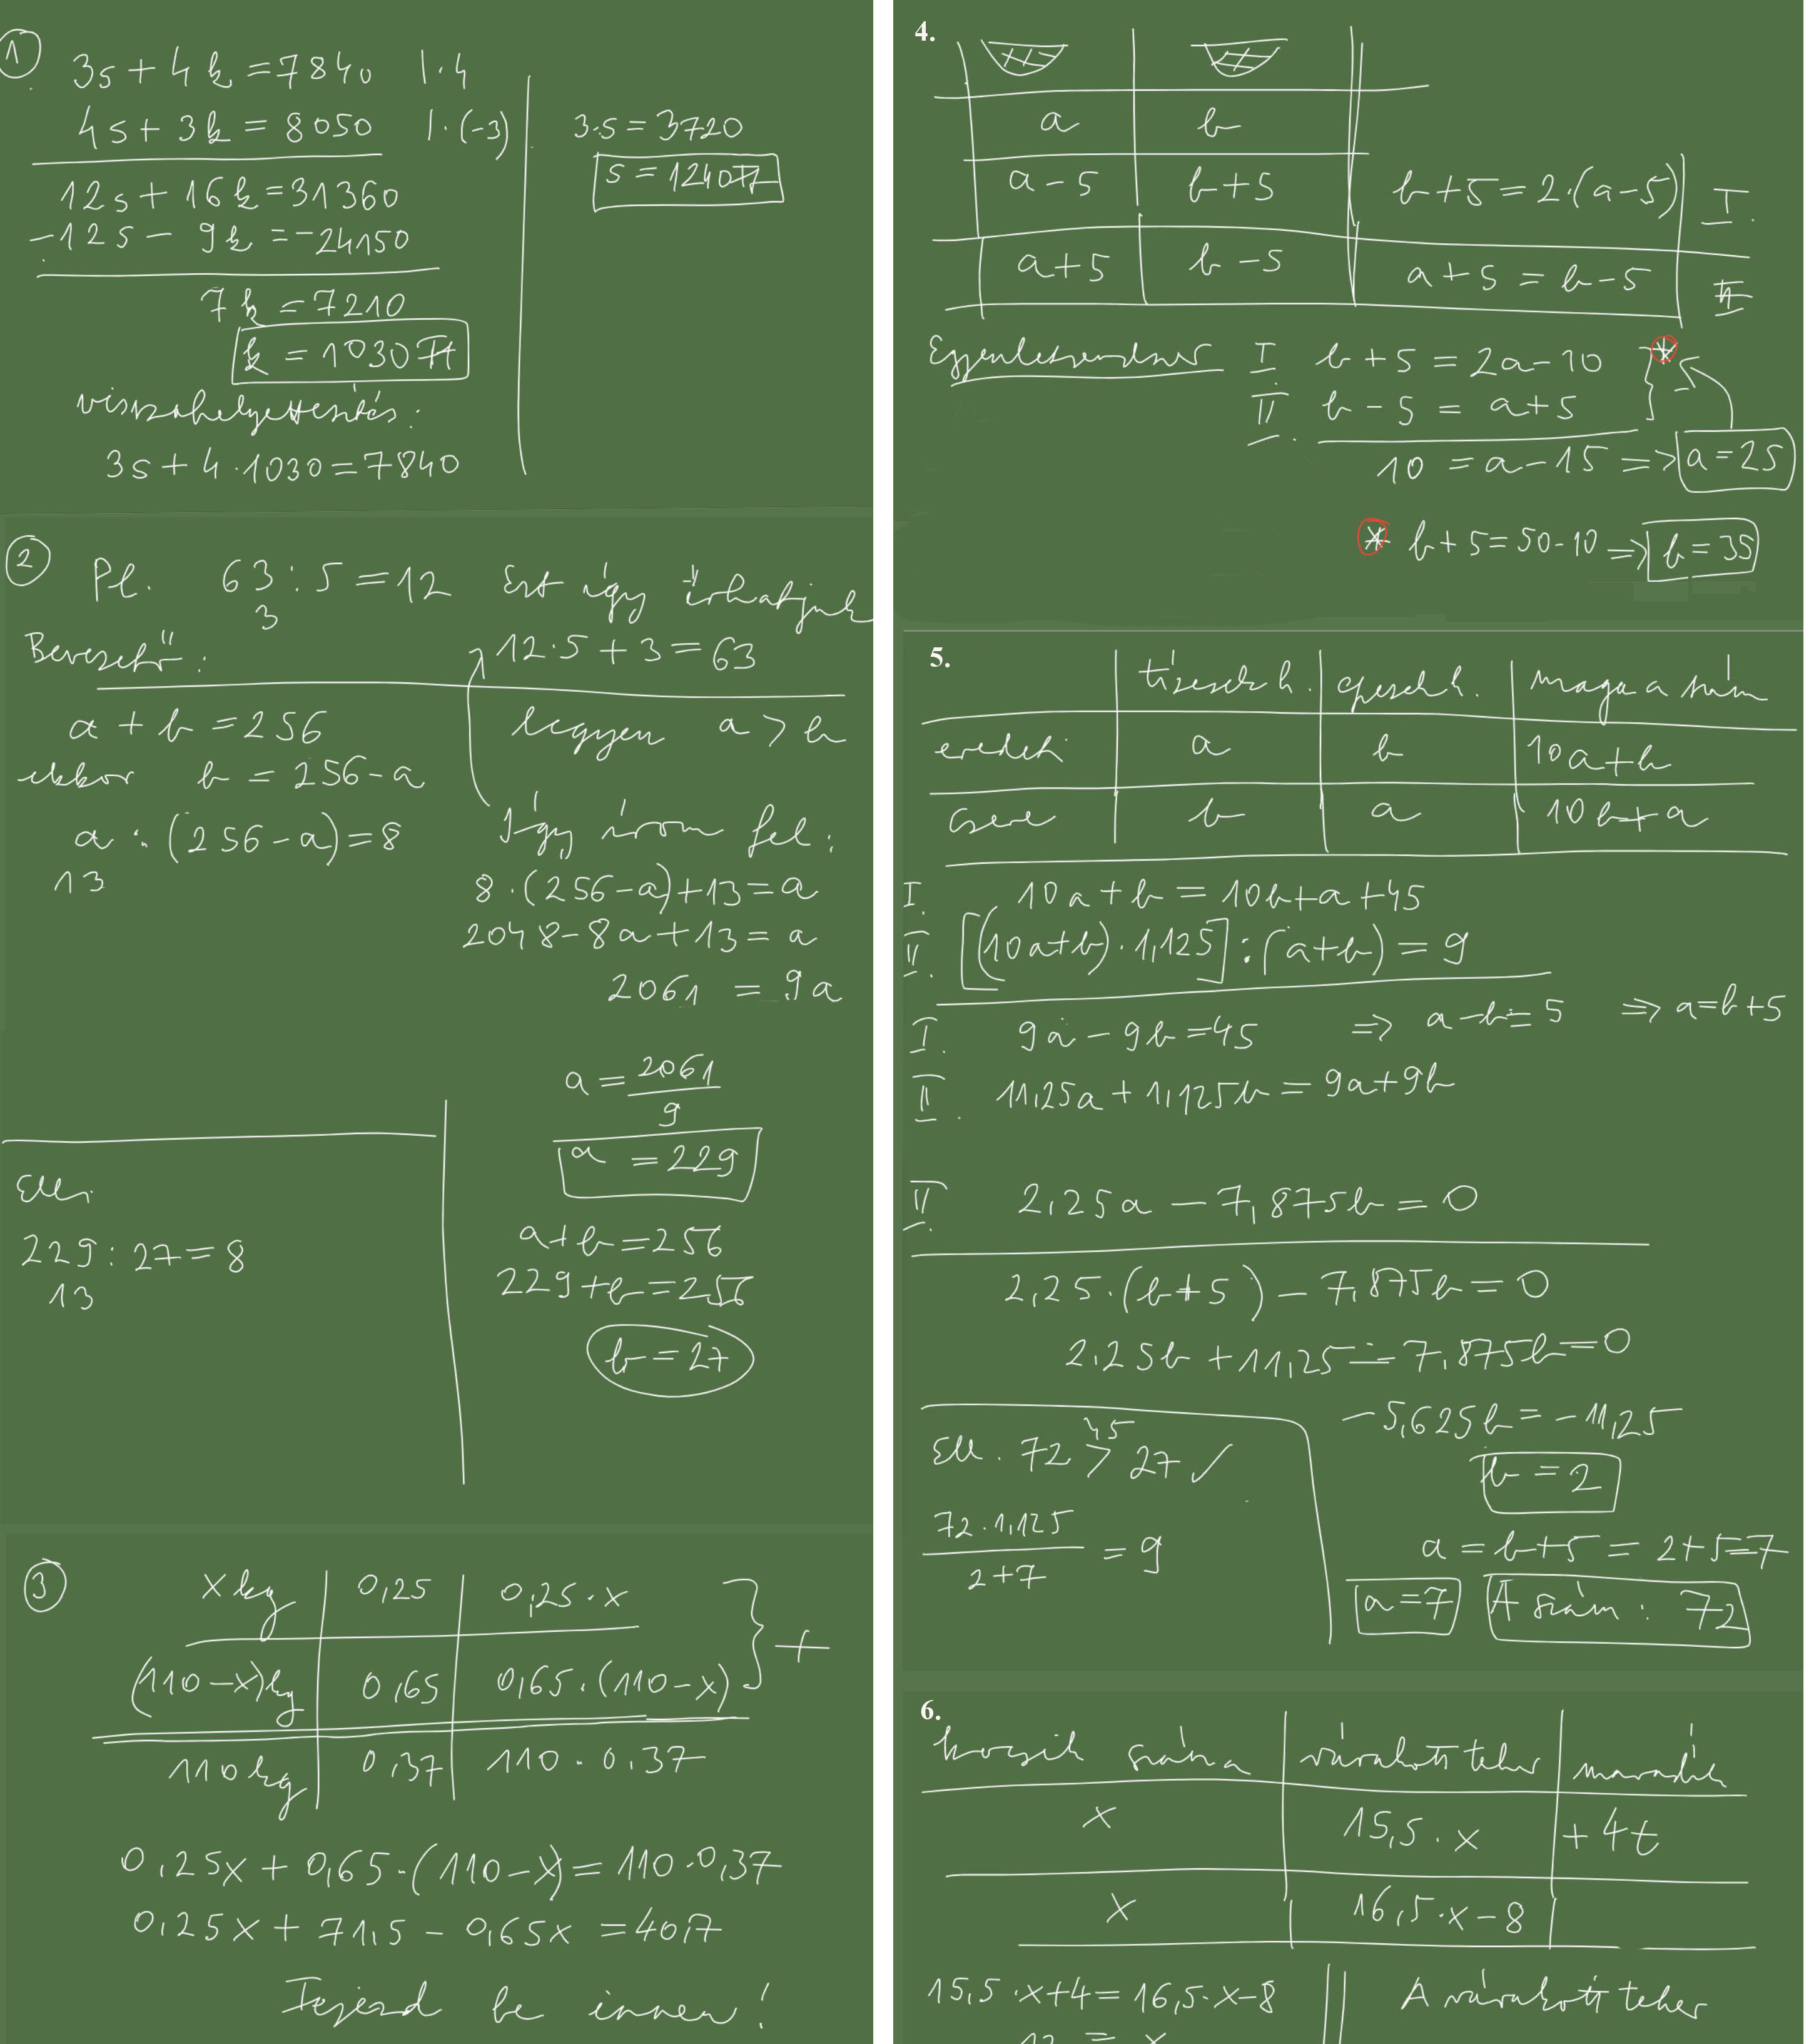 1
3s + 4k = 7840 |·4
4s + 3k = 8050 |·(-3)
12s + 16k = 31360
-12s - 9k = -24150
7k = 7210
k = 1030 Ft
visszahelyettesítés:
3s + 4·1030 = 7840
3·s = 3720
s = 1240 Ft
2
Pl. 63 : 5 = 12 Ezt úgy írhatjuk
3
Bevezető: 12·5 + 3 = 63
a + b = 256 legyen a > b
ekkor b = 256 - a
a : (256 - a) = 8 Így írom fel:
13
8·(256 - a) + 13 = a
2048 - 8a + 13 = a
2061 = 9a
a = 2061/9
a = 229
a + b = 256
229 + b = 256
b = 27
Ell.
229 : 27 = 8
13
3
x kg | 0,25 | 0,25·x
(110 - x) kg | 0,65 | 0,65·(110 - x) } +
110 kg | 0,37 | 110·0,37
0,25x + 0,65·(110 - x) = 110·0,37
0,25x + 71,5 - 0,65x = 40,7
Fejezd be innen!
4.
a | b
a - 5 | b + 5 | b + 5 = 2·(a - 5) | I.
a + 5 | b - 5 | a + 5 = b - 5 | II
Egyenletrendszer I b + 5 = 2a - 10 } *
II. b - 5 = a + 5
10 = a - 15 => a = 25
* b + 5 = 50 - 10 => b = 35
5.
tízesek h. | egyesek h. | maga a szám
eredeti | a | b | 10a + b
csere | b | a | 10b + a
I. 10a + b = 10b + a + 45
II. [(10a + b)·1,125] : (a + b) = 9
I. 9a - 9b = 45 => a - b = 5 => a = b + 5
II. 11,25a + 1,125b = 9a + 9b
II. 2,25a - 7,875b = 0
2,25·(b + 5) - 7,875b = 0
2,25b + 11,25 - 7,875b = 0
-5,625b = -11,25
b = 2
a = b + 5 = 2 + 5 = 7
a = 7 A szám: 72
45
Ell. 72 > 27 ✓
72·1,125
2 + 7
= 9
6.
kocsik száma | várakozó teher | maradék
x | 15,5·x | + 4t
x | 16,5·x - 8
15,5·x + 4 = 16,5·x - 8 || A várakozó teher
12 = x